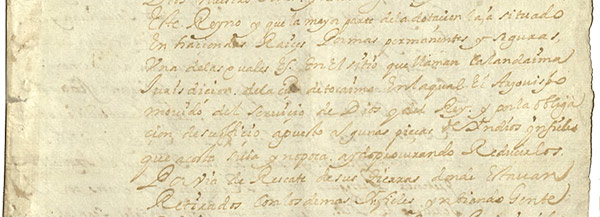 Este Reyno y que la mayor parte de la dotacion esta situado
En haciendas Raices Por mas permanentes y siguras
Una de las quales Es En el sitio que llaman Calandaima
Jurisdicion de la de tocaima En la qual El Arçouispo
mouido del seruicio de Dios y del Rey y por la obliga
cion de su oficio a puesto algunas pieças de Indios ynfieles
que a costa suia y no poca a ydo procurando Reducirlos
Por Vio de Rescate de sus tierras donde Estauan
Retirados Con los demas Infieles y ynbiando Gente